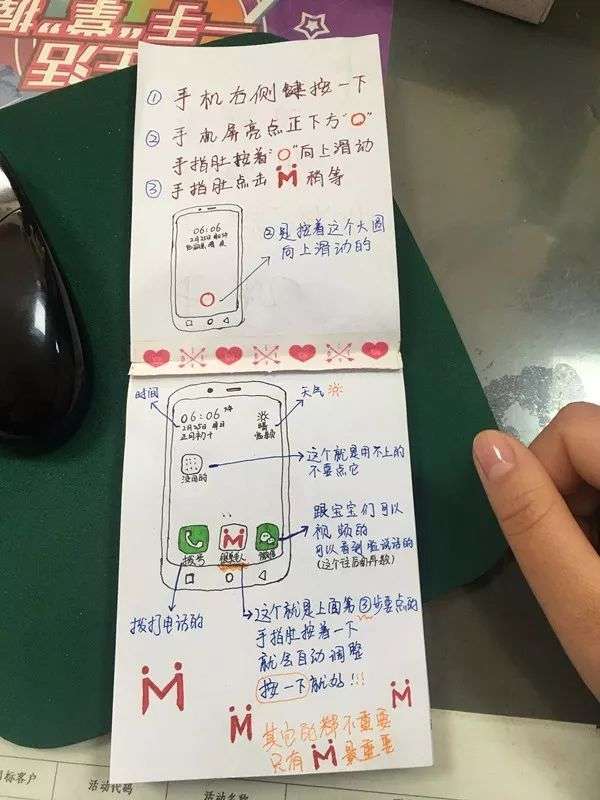 手"掌"握
生活
① 手机右侧键按一下
② 手机屏亮点正下方"O"
手指肚按着"O"向上滑动
③ 手指肚点击 稍等
06:06
②是按着这个大圆
向上滑动的
时间
天气
06:06
晴
正月初十
没用的
这个就是用不上的
不要点它
跟宝宝们可以
视频的
可以看到脸说话的
拨号
微信
拨打电话的
这个就是上面第③步要点的
手指肚按着一下
就会自动调整
按一下就好!!!
其它的都不重要
只有 最重要
目标客户
活动代码
活动名称